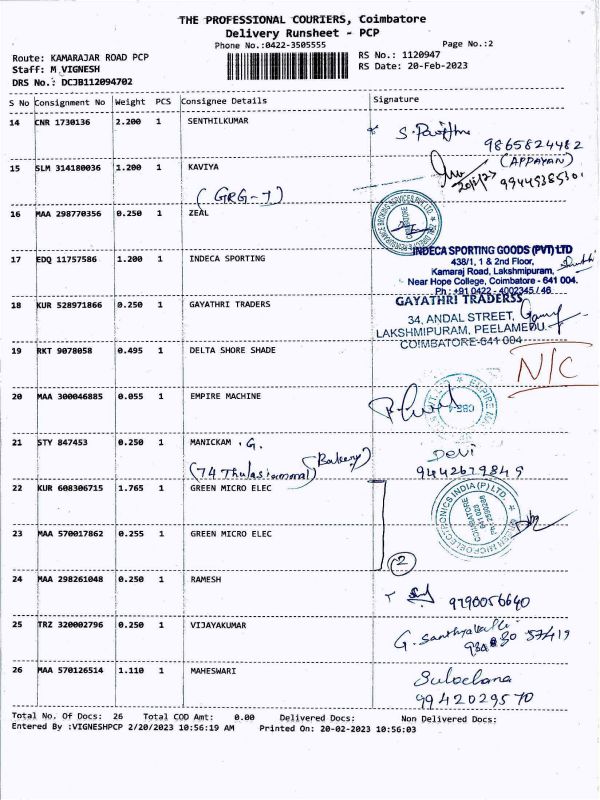 THE PROFESSIONAL COURIERS, Coimbatore
Delivery Runsheet - PCP
Phone No.:0422-3505555
Page No.:2
Route: KAMARAJAR ROAD PCP
RS No.: 1120947
Staff: M VIGNESH
RS Date: 20-Feb-2023
DRS No.: DCJB112094702
S No Consignment No Weight PCS Consignee Details Signature
14 CNR 1730136 2.200 1 SENTHILKUMAR
9865824482
15 SLM 314180036 1.200 1 KAVIYA
(APPAYAN)
(GRG-7)
16 MAA 298770356 0.250 1 ZEAL
17 EDQ 11757586 1.200 1 INDECA SPORTING
INDECA SPORTING GOODS (PVT) LTD
438/1, 1 & 2nd Floor,
Kamaraj Road, Lakshmipuram,
Near Hope College, Coimbatore - 641 004.
Ph : +91 0422 - 4002345 / 46
18 KUR 528971866 0.250 1 GAYATHRI TRADERS
GAYATHRI TRADERSS
34, ANDAL STREET,
LAKSHMIPURAM, PEELAMEDU.
COIMBATORE-641 004
19 RKT 9078058 0.495 1 DELTA SHORE SHADE
N/C
20 MAA 300046885 0.055 1 EMPIRE MACHINE
21 STY 847453 0.250 1 MANICKAM . G.
Devi
(Bakery)
9442679849
22 KUR 608306715 1.765 1 GREEN MICRO ELEC
23 MAA 570017862 0.255 1 GREEN MICRO ELEC
2
24 MAA 298261048 0.250 1 RAMESH
9790056640
25 TRZ 320002796 0.250 1 VIJAYAKUMAR
26 MAA 570126514 1.110 1 MAHESWARI
Sulochana
9942029570
Total No. Of Docs: 26 Total COD Amt: 0.00 Delivered Docs: Non Delivered Docs:
Entered By :VIGNESHPCP 2/20/2023 10:56:19 AM Printed On: 20-02-2023 10:56:03